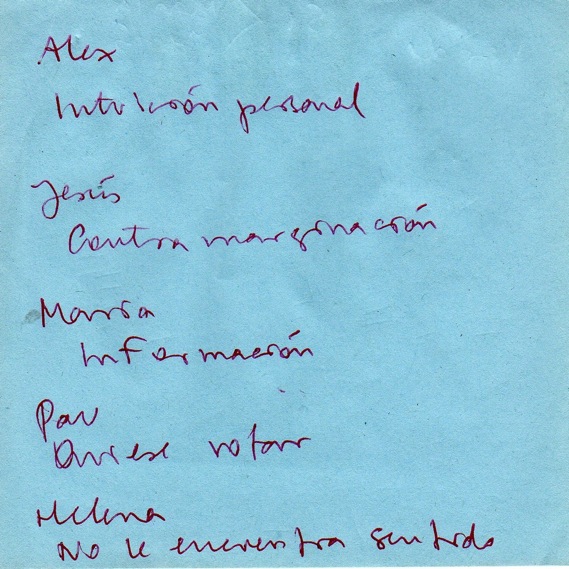 Alex
Intuición personal
Jesús
Contra marginación
María
Información
Pau
Quiere votar
Helena
No le encuentra sentido